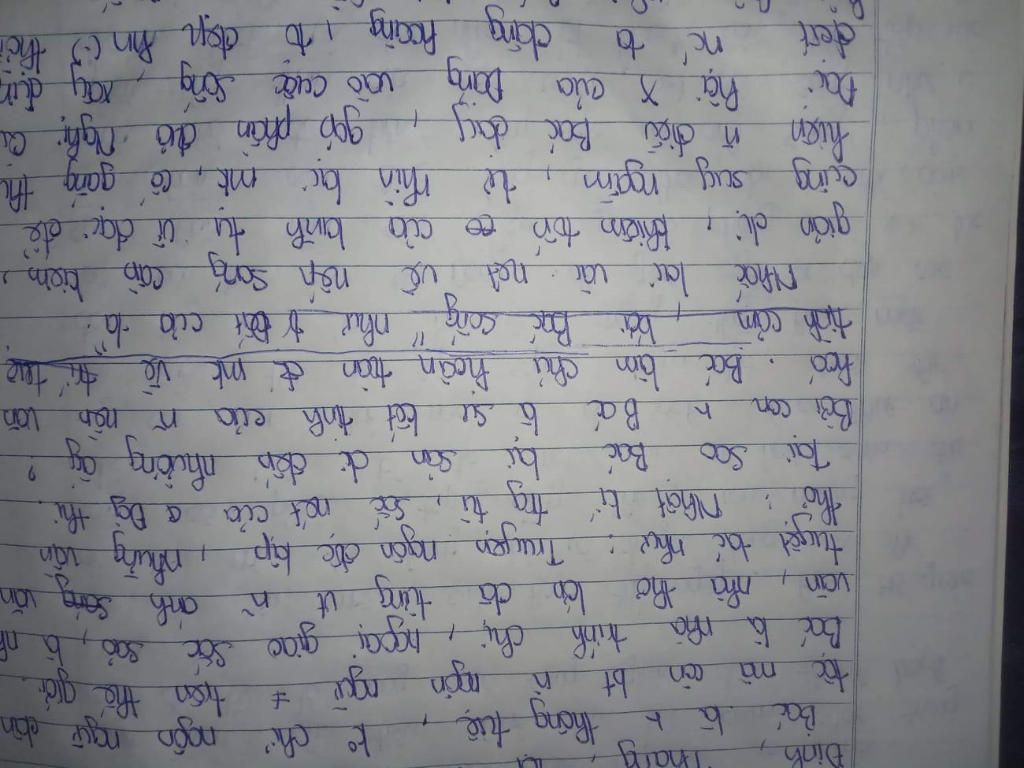 Định, Thăng,
Bác là 1 thông tuệ, k° chỉ ngôn ngữ dân
tộc mà còn bt n ngôn ngữ ≠ trên thế giới.
Bác là nhà trính chị, ngoại giao sắc sảo, là nh
văn, nhà thơ lớn đã từng vt n~ anh sáng văn
tuyệt tác như: Truyện ngôn độc lập, những vần
thơ: Nhật kí trg tù, sắc nét của a Đg thi.
Tại sao Bác lại sản dị đến nhường ấy?
Bởi con n Bác là sự kết tinh của n~ nền văn
hoá. Bác làm chủ hoàn toàn đc mk về trí tuệ
tình cảm, bởi Bác sống "như tr đất của ta".
Nhắc lại vài nét về nếp sống cần kiệm,
giản dị, khiêm tốn của lãnh tụ vĩ đại để
cùng suy ngẫm, tự nhìn lại mk, cố gắng th
hiện n~ điều Bác dạy, góp phần đó Nghị q
Đại hội X của Đảng vào cuộc sống, xây dựn
đất nc ta đàng hoàng, to đẹp hơn (-) thời